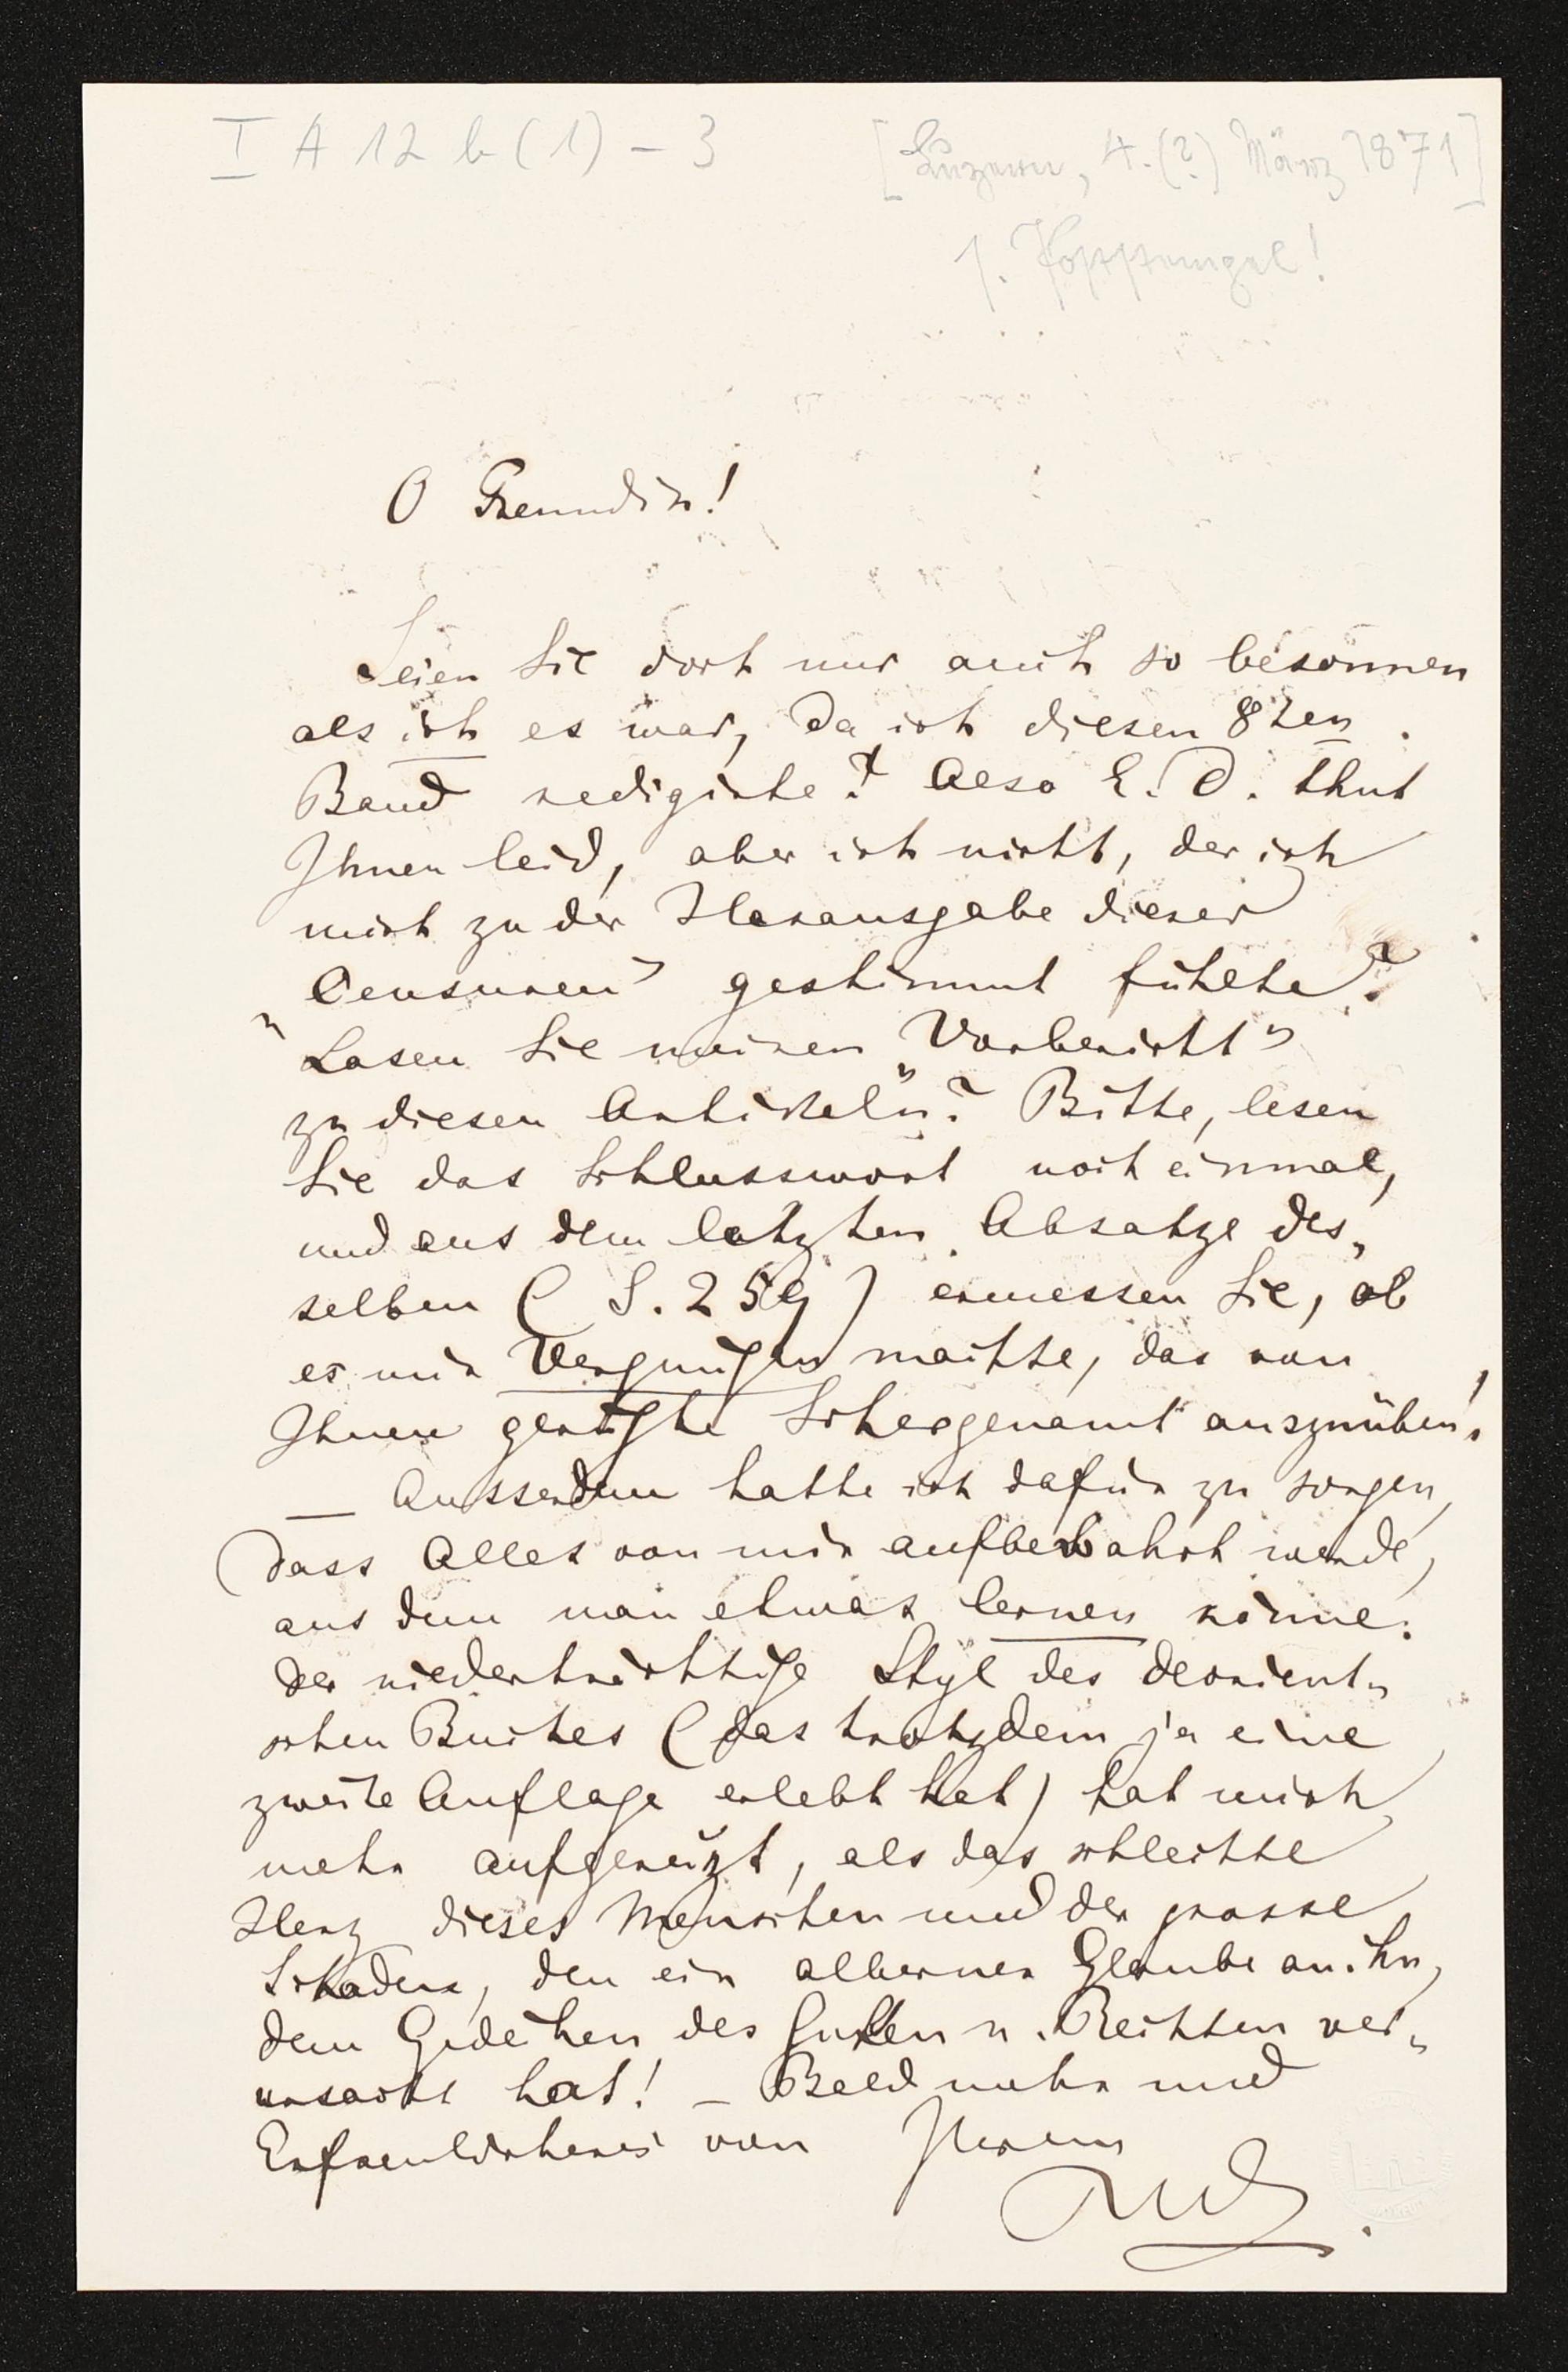 I A 12 b (1) - 3
[Luzern, 4. (?) März 1871]
O Freundin!
Seien Sie doch nur auch so besonnen
als ich es war, da ich diesen 8ten
Band redigirte! Also E. D. thut
Ihnen leid, aber ich nicht, der ich
mich zu der Herausgabe dieser
„Censuren” gestimmt fühlte?
Lasen Sie meinen „Vorbericht”
zu diesen Artikeln? Bitte, lesen
Sie das Schlusswort noch einmal,
und aus dem letzten Absatze des„
selben (S. 259) ermessen Sie, ob
es mir Vergnügen machte, das von
Ihnen gerügte Schergenamt auszuüben!
— Ausserdem hatte ich dafür zu sorgen,
dass Alles von mir aufbewahrt werde,
aus dem man etwas lernen könne.
Der niederträchtige Styl des Devrient„
schen Buches (das trotzdem ja eine
zweite Auflage erlebt hat) hat mich
mehr aufgereizt, als das schlechte
Herz dieses Menschen und der grosse
Schaden, den ein alberner Glaube an ihn,
dem Gedeihen des Guten u. Rechten ver„
ursacht hat! — Bald mehr und
Erfreulicheres von Ihrem
RW.